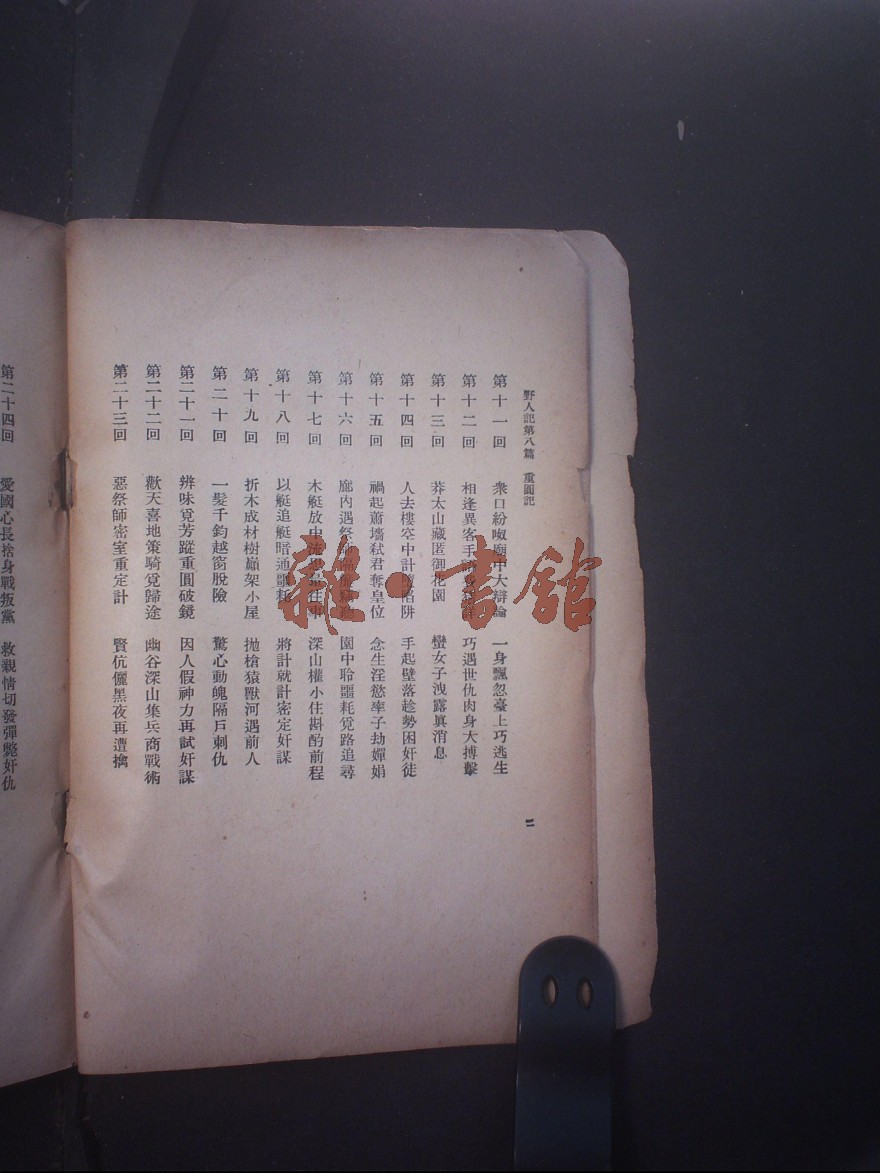 野人記第八篇 重圓記
第十一回 衆口紛呶廟中大辯論 一身飄忽臺上巧逃生
第十二回 相逢異客手 巧遇世仇肉身大搏擊
第十三回 莽太山藏匿御花園 蠻女子洩露眞消息
第十四回 人去樓空中計墮陷阱 手起壁落趁勢困奸徒
第十五回 禍起蕭墻弒君奪皇位 念生淫慾率子劫嬋娟
第十六回 廊內遇祭師 園中聆噩耗覓路追尋
第十七回 木艇放中流 往事 深山權小住斟酌前程
第十八回 以艇追艇暗通噩耗 將計就計密定奸謀
第十九回 折木成材樹巔架小屋 拋槍猿獸河遇前人
第二十回 一髮千鈞越窗脫險 驚心動魄隔戶刺仇
第二十一回 辨味覓芳蹤重圓破鏡 因人假神力再試奸謀
第二十二回 歡天喜地策騎覓歸途 幽谷深山集兵商戰術
第二十三回 惡祭師密室重定計 賢伉儷黑夜再遭擒
二
第二十四回 愛國心長捨身戰叛黨 救親情切發彈斃奸仇
雜·書館